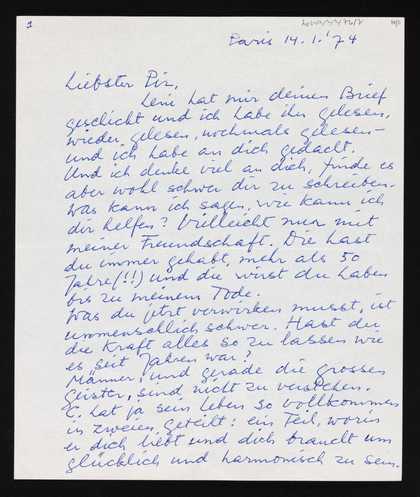 1
Paris 14.1.'74
Liebster Pir,
Leni hat mir deinen Brief
geschickt und ich habe ihn gelesen,
wieder gelesen, nochmals gelesen –
und ich habe an dich gedacht.
Und ich denke viel an dich, finde es
aber wohl schwer dir zu schreiben.
Was kann ich sagen, wie kann ich
dir helfen? Vielleicht nur mit
meiner Freundschaft. Die hast
du immer gehabt, mehr als 50
Jahre (!!) und die wirst du haben
bis zu meinem Tode.
Was du jetzt verwirken musst, ist
unmenschlich schwer. Hast du
die Kraft alles so zu lassen wie
es seit Jahren war?
Männer, und gerade die grossen
Geister, sind nicht zu verstehen.
C. hat ja sein Leben so vollkommen
in zweien geteilt: ein Teil, worin
er dich liebt und dich braucht um
glücklich und harmonisch zu sein.